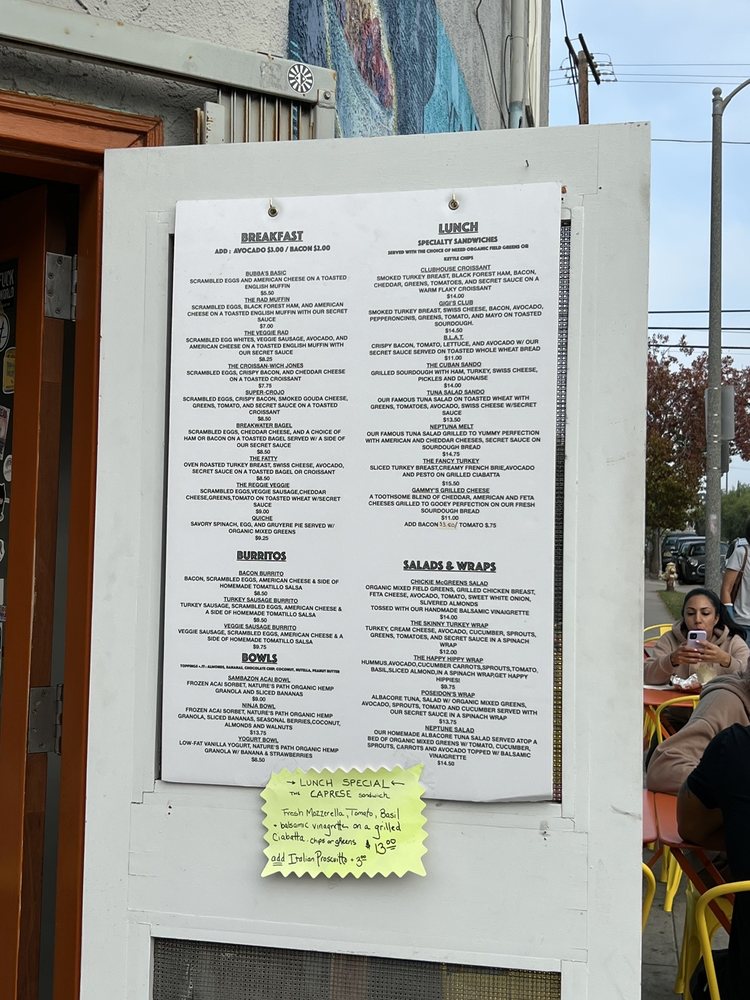 BREAKFAST
ADD : AVOCADO $3.00 / BACON $2.00
BUBBA'S BASIC
SCRAMBLED EGGS AND AMERICAN CHEESE ON A TOASTED
ENGLISH MUFFIN
$5.50
THE RAD MUFFIN
SCRAMBLED EGGS, BLACK FOREST HAM, AND AMERICAN
CHEESE ON A TOASTED ENGLISH MUFFIN WITH OUR SECRET
SAUCE
$7.00
THE VEGGIE RAD
SCRAMBLED EGG WHITES, VEGGIE SAUSAGE, AVOCADO, AND
AMERICAN CHEESE ON A TOASTED ENGLISH MUFFIN WITH
OUR SECRET SAUCE
$8.25
THE CROISSAN-WICH JONES
SCRAMBLED EGGS, CRISPY BACON, AND CHEDDAR CHEESE
ON A TOASTED CROISSANT
$7.75
SUPER-CROJO
SCRAMBLED EGGS, CRISPY BACON, SMOKED GOUDA CHEESE,
GREENS, TOMATO, AND SECRET SAUCE ON A TOASTED
CROISSANT
$8.50
BREAKWATER BAGEL
SCRAMBLED EGGS, CHEDDAR CHEESE, AND A CHOICE OF
HAM OR BACON ON A TOASTED BAGEL SERVED W/ A SIDE OF
OUR SECRET SAUCE
$8.50
THE FATTY
OVEN ROASTED TURKEY BREAST, SWISS CHEESE, AVOCADO,
SECRET SAUCE ON A TOASTED BAGEL OR CROISSANT
$8.50
THE REGGIE VEGGIE
SCRAMBLED EGGS,VEGGIE SAUSAGE,CHEDDAR
CHEESE,GREENS,TOMATO ON TOASTED WHEAT W/SECRET
SAUCE
$9.00
QUICHE
SAVORY SPINACH, EGG, AND GRUYERE PIE SERVED W/
ORGANIC MIXED GREENS
$9.25
BURRITOS
BACON BURRITO
BACON, SCRAMBLED EGGS, AMERICAN CHEESE & SIDE OF
HOMEMADE TOMATILLO SALSA
$8.50
TURKEY SAUSAGE BURRITO
TURKEY SAUSAGE, SCRAMBLED EGGS, AMERICAN CHEESE &
A SIDE OF HOMEMADE TOMATILLO SALSA
$9.50
VEGGIE SAUSAGE BURRITO
VEGGIE SAUSAGE, SCRAMBLED EGGS, AMERICAN CHEESE & A
SIDE OF HOMEMADE TOMATILLO SALSA
$9.75
BOWLS
TOPPINGS +.75 : ALMONDS, BANANAS, CHOCOLATE CHIP, COCONUT, NUTELLA, PEANUT BUTTER
SAMBAZON ACAI BOWL
FROZEN ACAI SORBET, NATURE'S PATH ORGANIC HEMP
GRANOLA AND SLICED BANANAS
$9.00
NINJA BOWL
FROZEN ACAI SORBET, NATURE'S PATH ORGANIC HEMP
GRANOLA, SLICED BANANAS, SEASONAL BERRIES,COCONUT,
ALMONDS AND WALNUTS
$13.75
YOGURT BOWL
LOW-FAT VANILLA YOGURT, NATURE'S PATH ORGANIC HEMP
GRANOLA W/ BANANA & STRAWBERRIES
$8.50
LUNCH
SPECIALTY SANDWICHES
SERVED WITH THE CHOICE OF MIXED ORGANIC FIELD GREENS OR
KETTLE CHIPS
CLUBHOUSE CROISSANT
SMOKED TURKEY BREAST, BLACK FOREST HAM, BACON,
CHEDDAR, GREENS, TOMATOES, AND SECRET SAUCE ON A
WARM FLAKY CROISSANT
$14.00
GIGI'S CLUB
SMOKED TURKEY BREAST, SWISS CHEESE, BACON, AVOCADO,
PEPPERONCINIS, GREENS, TOMATO, AND MAYO ON TOASTED
SOURDOUGH.
$14.50
B.L.A.T.
CRISPY BACON, TOMATO, LETTUCE, AND AVOCADO W/ OUR
SECRET SAUCE SERVED ON TOASTED WHOLE WHEAT BREAD
$11.00
THE CUBAN SANDO
GRILLED SOURDOUGH WITH HAM, TURKEY, SWISS CHEESE,
PICKLES AND DIJONAISE
$14.00
TUNA SALAD SANDO
OUR FAMOUS TUNA SALAD ON TOASTED WHEAT WITH
GREENS, TOMATOES, AVOCADO, SWISS CHEESE W/SECRET
SAUCE
$13.50
NEPTUNA MELT
OUR FAMOUS TUNA SALAD GRILLED TO YUMMY PERFECTION
WITH AMERICAN AND CHEDDAR CHEESES, SECRET SAUCE ON
SOURDOUGH BREAD
$14.75
THE FANCY TURKEY
SLICED TURKEY BREAST,CREAMY FRENCH BRIE,AVOCADO
AND PESTO ON GRILLED CIABATTA
$15.50
GAMMY'S GRILLED CHEESE
A TOOTHSOME BLEND OF CHEDDAR, AMERICAN AND FETA
CHEESES GRILLED TO GOOEY PERFECTION ON OUR FRESH
SOURDOUGH BREAD
$11.00
ADD BACON $3.00/ TOMATO $.75
SALADS & WRAPS
CHICKIE McGREENS SALAD
ORGANIC MIXED FIELD GREENS, GRILLED CHICKEN BREAST,
FETA CHEESE, AVOCADO, TOMATO, SWEET WHITE ONION,
SLIVERED ALMONDS
TOSSED WITH OUR HANDMADE BALSAMIC VINAIGRETTE
$14.00
THE SKINNY TURKEY WRAP
TURKEY, CREAM CHEESE, AVOCADO, CUCUMBER, SPROUTS,
GREENS, TOMATOES, AND SECRET SAUCE IN A SPINACH
WRAP
$12.00
THE HAPPY HIPPY WRAP
HUMMUS,AVOCADO,CUCUMBER CARROTS,SPROUTS,TOMATO,
BASIL,SLICED ALMOND,IN A SPINACH WRAP.GET HAPPY
HIPPIES!
$9.75
POSEIDON'S WRAP
ALBACORE TUNA, SALAD W/ ORGANIC MIXED GREENS,
AVOCADO, SPROUTS, TOMATO AND CUCUMBER SERVED WITH
OUR SECRET SAUCE IN A SPINACH WRAP
$13.75
NEPTUNE SALAD
OUR HOMEMADE ALBACORE TUNA SALAD SERVED ATOP A
BED OF ORGANIC MIXED GREENS W/ TOMATO, CUCUMBER,
SPROUTS, CARROTS AND AVOCADO TOPPED W/ BALSAMIC
VINAIGRETTE
$14.50
→ LUNCH SPECIAL ←
THE CAPRESE sandwich
Fresh Mozzerella, Tomato, Basil
+ balsamic vinagrette on a grilled
Ciabatta. chips or greens $13.00
add Italian Proscuitto + 3.00